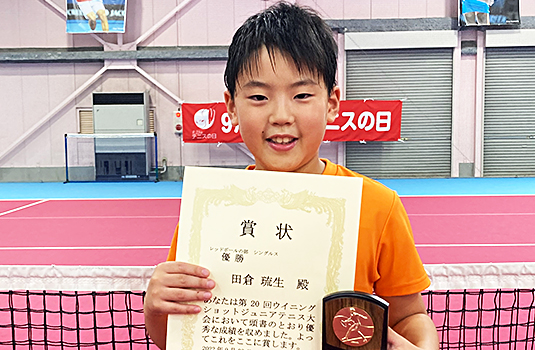 9月
テニスの日
賞状
レッドボールの部 シングルス
優勝
田倉 琉生 殿
あなたは第20回ウイニング
ショットジュニアテニス大
会において頭書のとおり優
秀な成績を収めました。よっ
てこれをここに賞します。